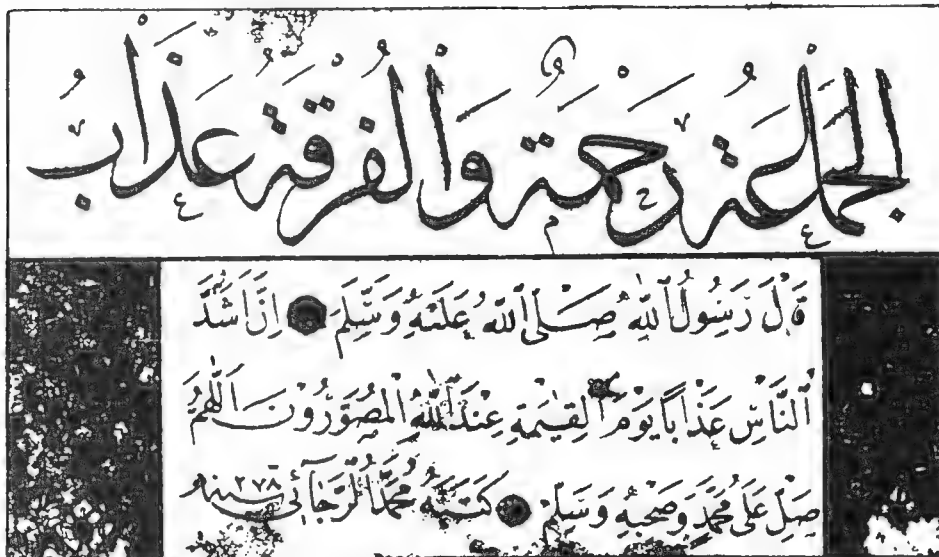 اَلْجَمَاعَةُ رَحْمَةٌ وَالْفُرْقَةُ عَذَابٌ
قَالَ رَسُولُ اللّٰهِ صَلَّى اللّٰهُ عَلَيْهِ وَسَلَّمَ اِنَّ اَشَدَّ
النَّاسِ عَذَابًا يَوْمَ الْقِيٰمَةِ عِنْدَ اللّٰهِ الْمُصَوِّرُونَ اَللّٰهُمَّ
صَلِّ عَلٰى مُحَمَّدٍ وَصَحْبِهِ وَسَلِّمْ كَتَبَهُ مُحَمَّدُ الرَّجَائِي سنه ٢٧٨